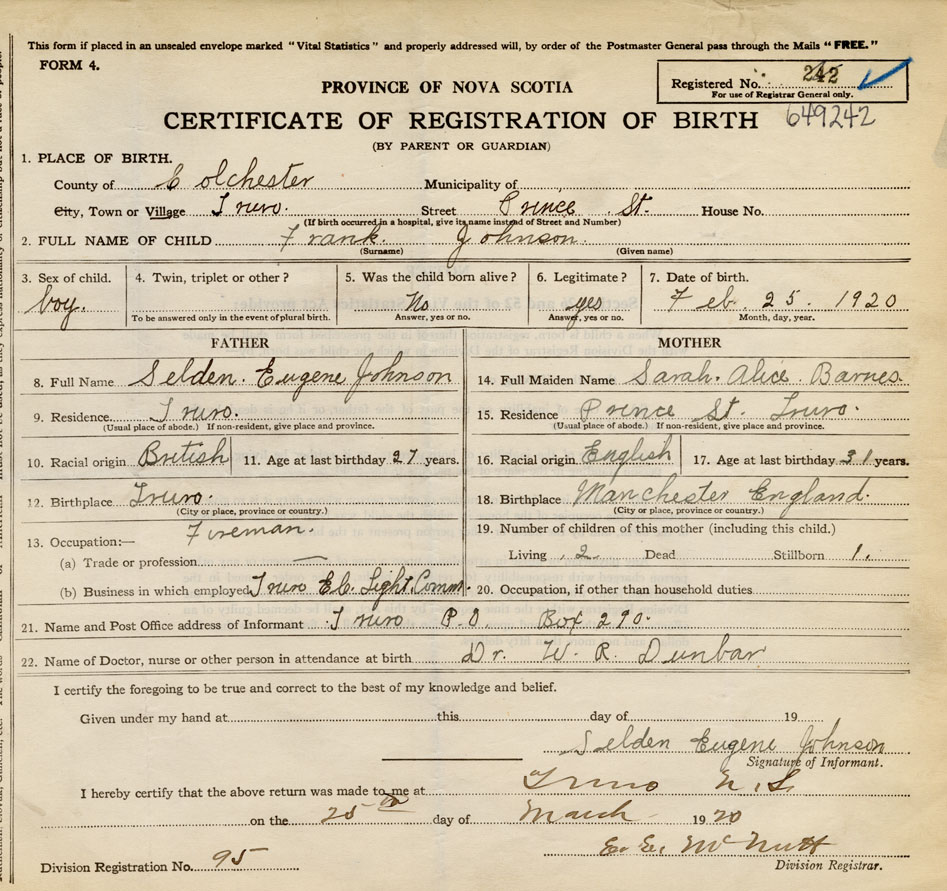 This form if placed in an unsealed envelope marked "Vital Statistics" and properly addressed will, by order of the Postmaster General pass through the Mails "FREE."
FORM 4.
Registered No. 242
For use of Registrar General only.
649242
PROVINCE OF NOVA SCOTIA
CERTIFICATE OF REGISTRATION OF BIRTH
(BY PARENT OR GUARDIAN)
1. PLACE OF BIRTH.
County of Colchester Municipality of
City, Town or Village Truro. Street Prince St. House No.
(If birth occurred in a hospital, give its name instead of Street and Number)
2. FULL NAME OF CHILD Frank. Johnson.
(Surname) (Given name)
3. Sex of child. 4. Twin, triplet or other? 5. Was the child born alive? 6. Legitimate? 7. Date of birth.
boy. No yes Feb. 25. 1920
To be answered only in the event of plural birth. Answer, yes or no. Answer, yes or no. Month, day, year.
FATHER MOTHER
8. Full Name Selden. Eugene Johnson 14. Full Maiden Name Sarah. Alice. Barnes
9. Residence. Truro. 15. Residence Prince St. Truro.
(Usual place of abode.) If non-resident, give place and province. (Usual place of abode.) If non-resident, give place and province.
10. Racial origin British 11. Age at last birthday 27 years. 16. Racial origin English 17. Age at last birthday 31 years.
12. Birthplace Truro. 18. Birthplace Manchester England.
(City or place, province or country.) (City or place, province or country.)
13. Occupation:— Fireman. 19. Number of children of this mother (including this child.)
(a) Trade or profession — Living 2 Dead Stillborn 1.
(b) Business in which employed Truro Elc. Light. Comm. 20. Occupation, if other than household duties
21. Name and Post Office address of Informant Truro P.O. Box 290.
22. Name of Doctor, nurse or other person in attendance at birth Dr. W. R. Dunbar
I certify the foregoing to be true and correct to the best of my knowledge and belief.
Given under my hand at this day of 19
Selden Eugene Johnson
Signature of Informant.
I hereby certify that the above return was made to me at Truro N.S.
on the 25th day of March 1920
E. E. McNutt
Division Registration No. 95 Division Registrar.